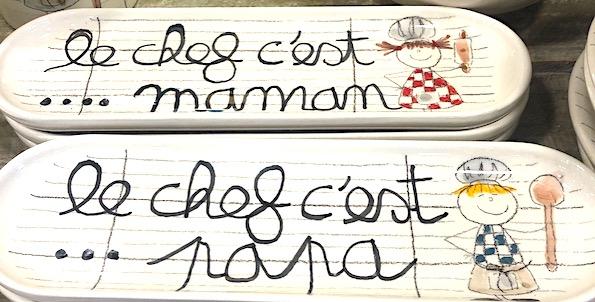 le chef c'est
.... maman
le chef c'est
... papa